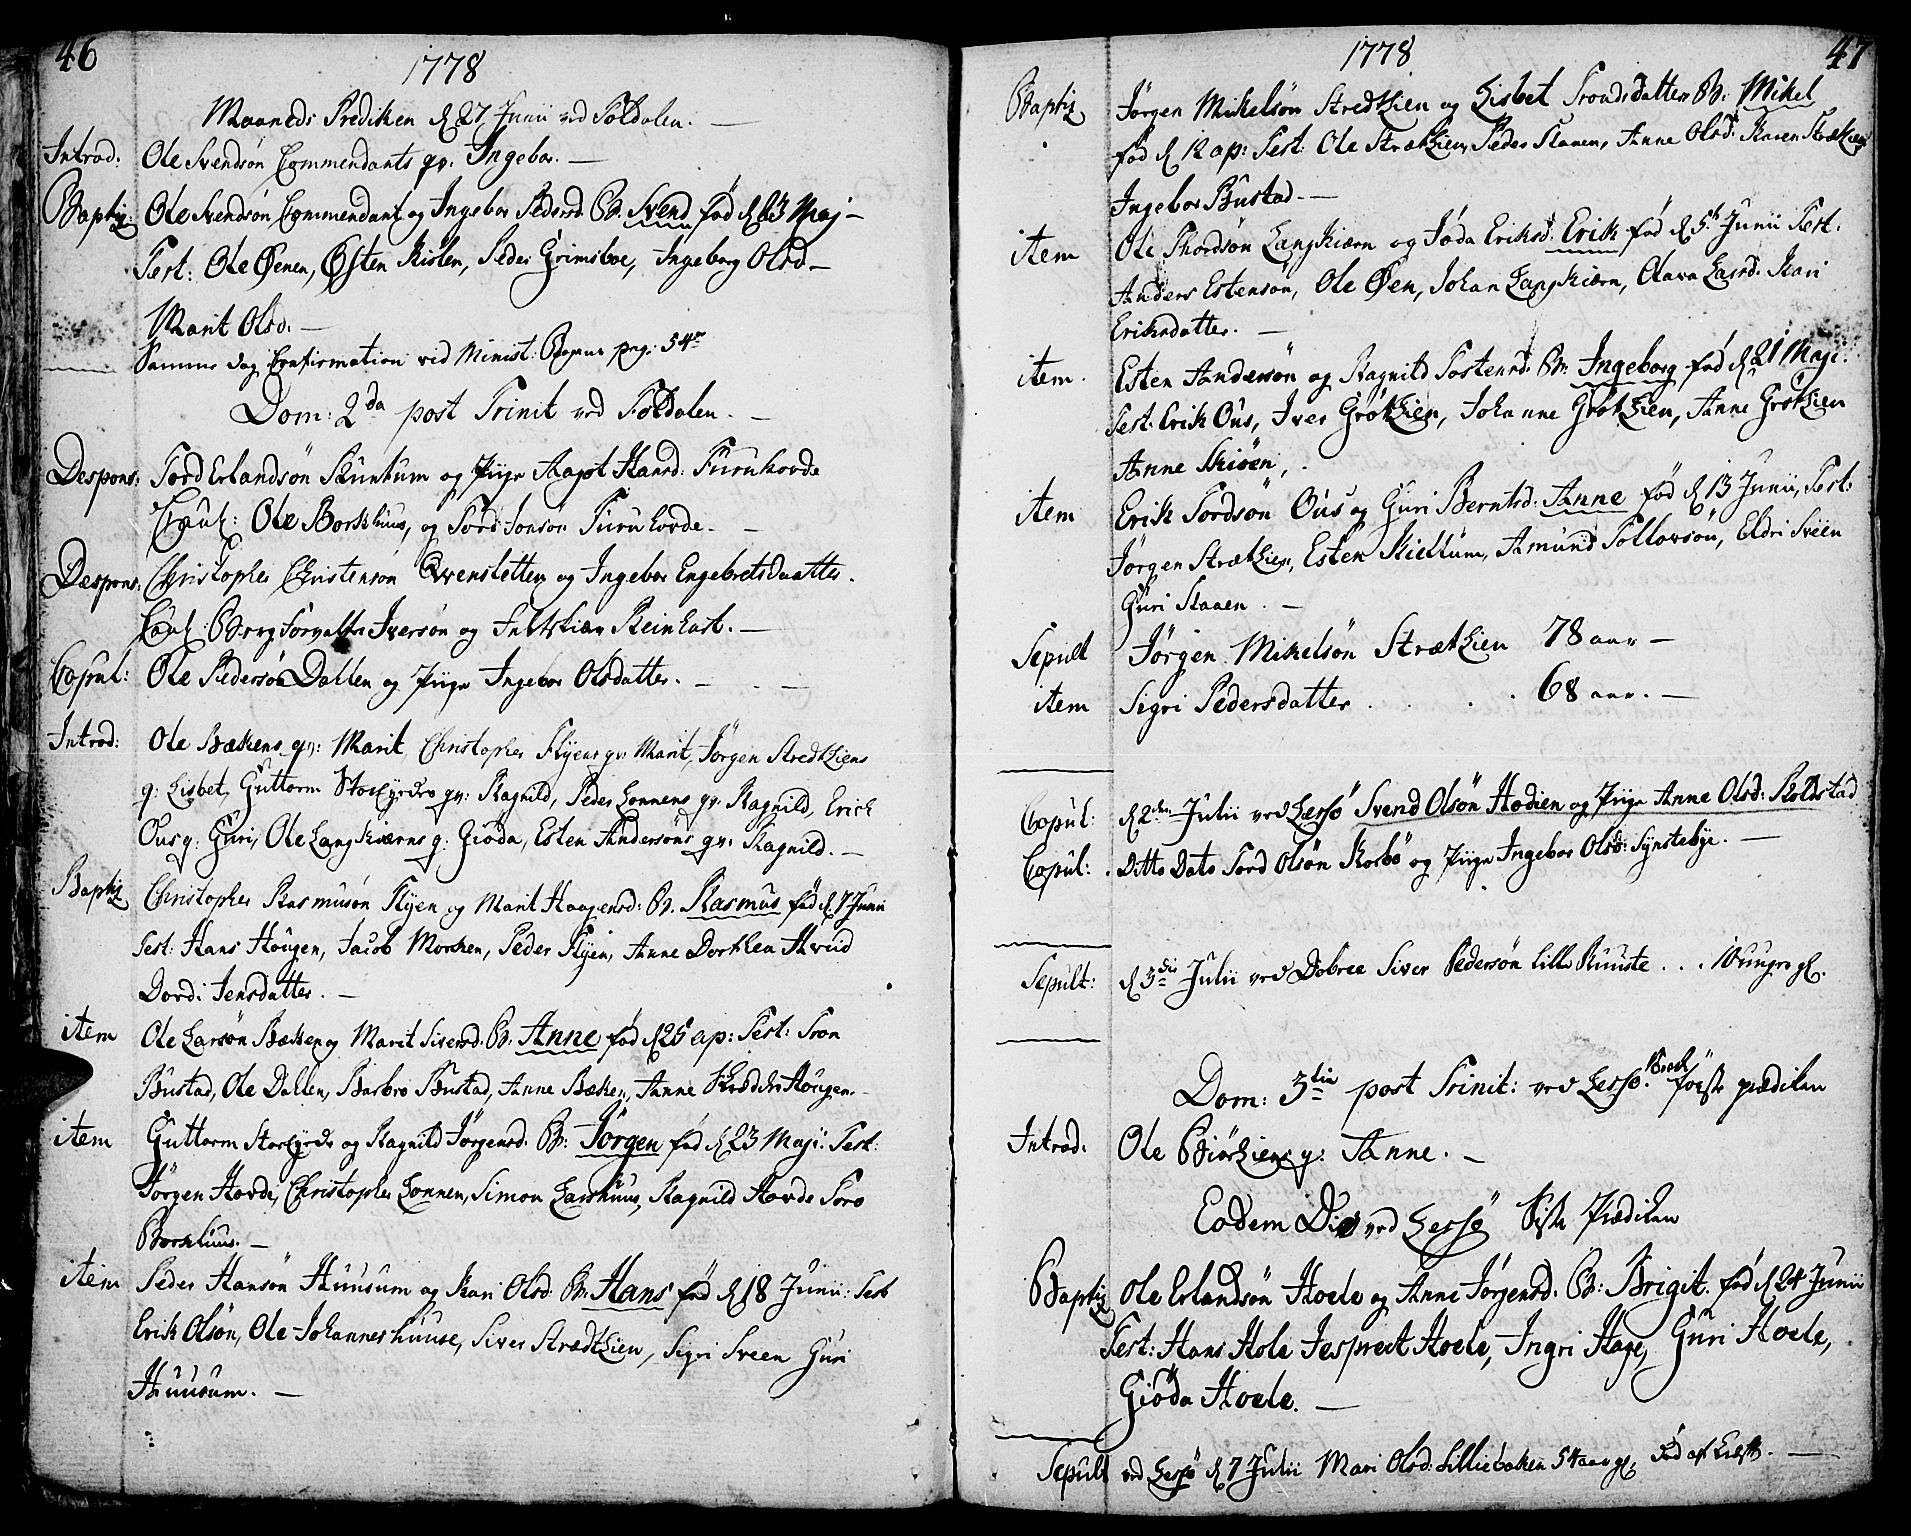 46
1778
Maaneds Prediken d 27 Junii ved Foldalen. —
Introd: Ole Svendsön Commendants qv: Ingebor. —
Baptiz: Ole Svendsön Commendant og Ingebor Pedersd. B. Svend fød d 23 Maj —
Test: Ole Øenen, Østen Kislen, Peder Grimsboe, Ingeborg Olsd —
Marit Olsd. —
Samme dag Confirmation ved Minist: pag: 54
Dom: 2da post Trinit ved Foldalen. —
Despons: Tord Erlandsön Skuntum og Pige Aagot Hansd: Furuhovde
Caut: Ole Borkhuus, og Tord Jonsön Furuhovde. —
Despons: Christopher Christensön Qvenstetten og Ingebor Engebretsdaatter.
Caut: Bergforvalter Iversön og Reinhart. —
Copul: Ole Pedersön Dallen og Pige Ingebor Olsdatter. —
Introd: Ole Bækens qv: Marit, Christopher Flyens qv: Marit, Jörgen Stredtliens
q: Lisbet, Guttorm Storlyrdes qv: Ragnild, Peder Lonnens qv: Ragnild, Erich
Ous q: Guri, Ole Langkiærns q: Giöda, Esten Andersöns qv: Ragnild. —
Baptiz Christopher Rasmusön Flyen og Marit Haagensd: B. Rasmus fød d 7 Junii
Test: Hans Hougen, Jacob Morken, Peder Flyen, Anne Dorthea
Dordi Jensdatter. —
item Ole Larsön Bækken og Marit Siversd: B. Anne fød d 25 ap: Test: Tron
Bustad, Ole Dallen, Barbro Bustad, Anne Bæken, Anne Hougen. —
item Guttorm og Ragnild Jörgensd. B: Jörgen fød d 23 Maji: Test:
Jörgen Hovde, Christopher Lonnen, Simon Larshuus, Ragnild Hovde Toro
Borkhuus. —
item Peder Hansön Huusum og Kari Olsd B: Hans fød d 18 Junii: Test
Erik Olsön, Ole Johanneshuuse, Siver Strædtlien, Sigri Sveen Guri
Huusum. —
1778
47
Baptiz Jörgen Mikelsön Stredtlien og Lisbet Trondsdatter B: Mikel
fød d 12 ap: Test: Ole Strætlien, Peder Staaen, Anne Olsd: Karen Strætlien
Ingebor Bustad. —
item Ole Thordsön Langkiærn og Jöda Eriksd: Erik fød d 5t Junii Test:
Anders Estensön, Ole Øen, Johan Langkiærn, Olava Larsd: Kari
Eriksdatter. —
item. Esten Andersön og Ragnild Tostensd. B: Ingeborg fød d 21 Maji
Test: Erik Ous, Iver Grötlien, Johanne Grötlien, Anne Grötlien
Anne Skiöen, .
item Erik Tordsön Ous og Guri Berntsd: Anne fød d 13 Junii, Test:
Jörgen Strætlien, Esten Kiellum, Amund Tollovsön, Eldri Sveen
Guri Staaen. —
Sepult Jörgen Mikelsön Strætlien 78 aar —
item Sigri Pedersdatter . . . 68 aar. —
Copul: d 2den Julii ved Lessö Svend Olsön Hodien og Pige Anne Olsd: Skolstad
Copul: . Ditto Dato Tord Olsön Korsbö og Pige Ingebor Olsd: Synstebye. —
Sepult: d 3die Julii ved Dobree Siver Pedersön Lille Ruuste . . . 10 uger gl.
Dom: 3tia post Trinit: ved Lessö Verk förste prædiken
Introd. Ole Biörliens q: Anne. —
Eodem Die ved Lessö Siste Prædiken
Baptiz Ole Erlandsön Hoele og Anne Jörgensd. B: Brigit. fød d 24 Junii
Test: Hans Hole Jesprect Hoele, Ingri Hage, Guri Hoele,
Giöda Hoele. —
Sepult ved Lessö d 7 Julii Mari Olsd: Lilliebaken 54 aar gl, —